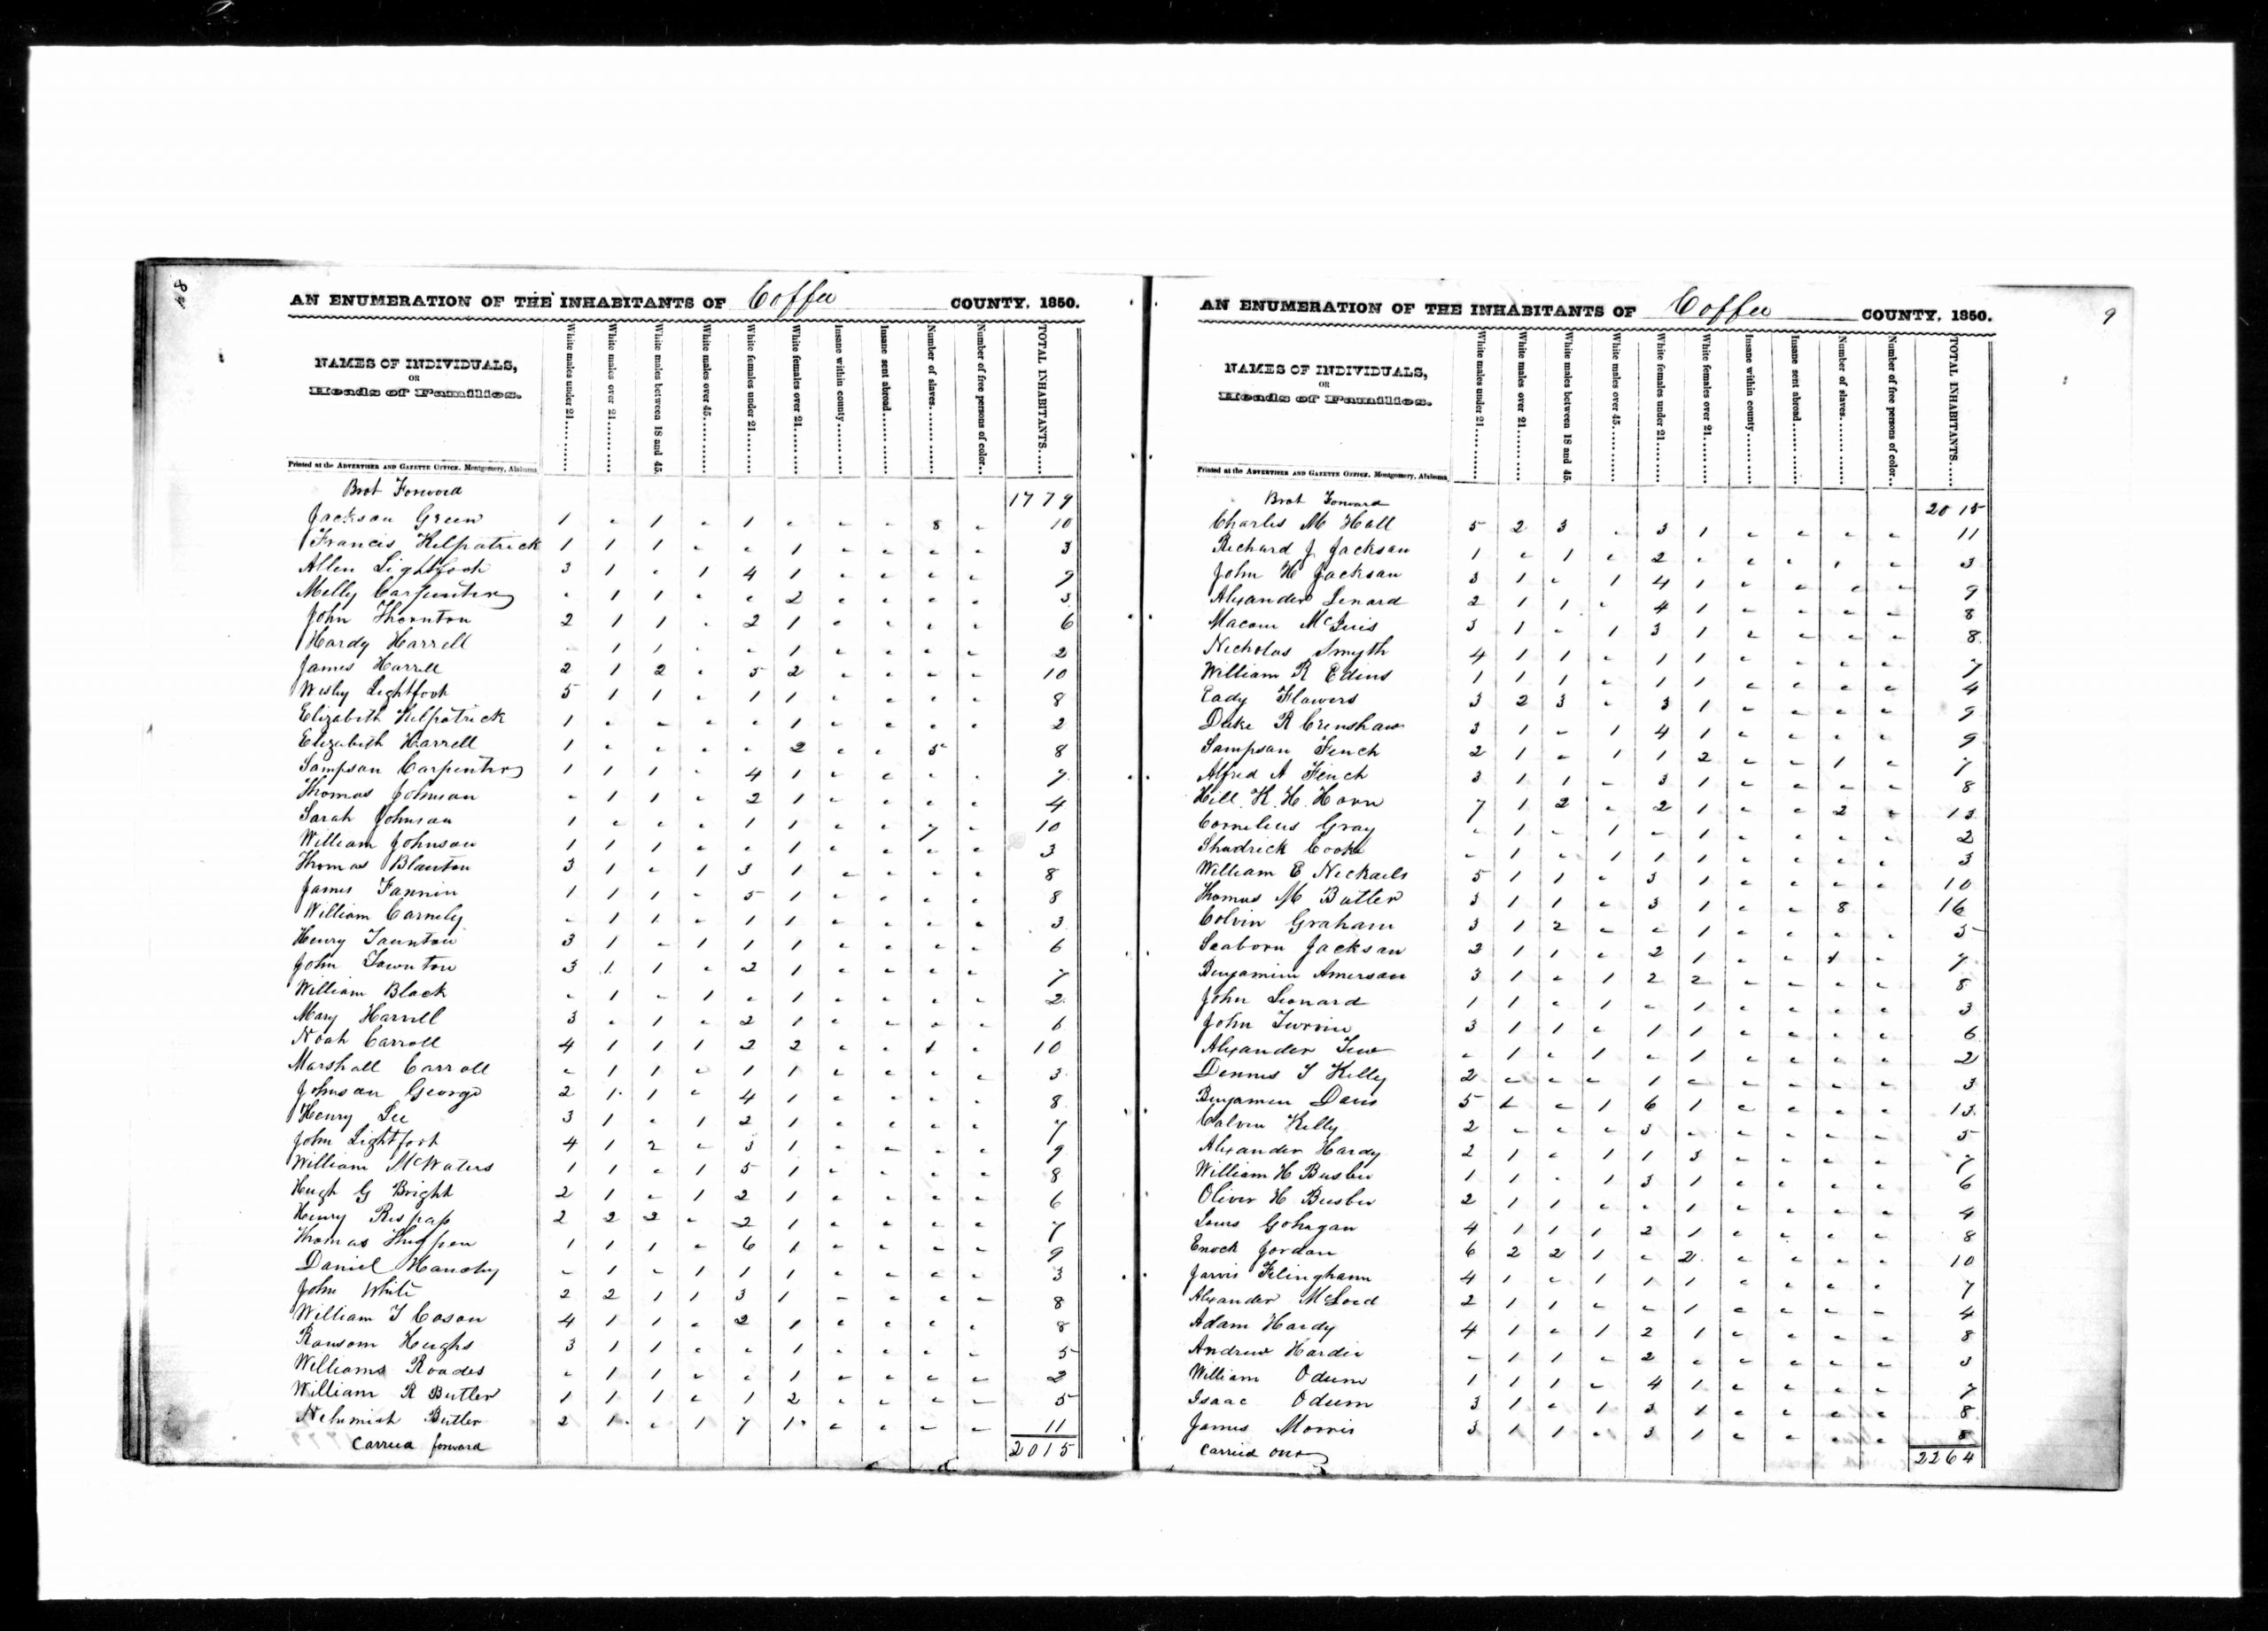 8
AN ENUMERATION OF THE INHABITANTS OF Coffee COUNTY, 1850.
NAMES OF INDIVIDUALS,
OR
Heads of Families.
Printed at the ADVERTISER AND GAZETTE OFFICE, Montgomery, Alabama.
White males under 21
White males over 21
White males between 18 and 45.
White males over 45
White females under 21
White females over 21
Insane within county
Insane sent abroad
Number of slaves
Number of free persons of color
TOTAL INHABITANTS
Brot Forward 1779
Jackson Green 1 " 1 " 1 " " " 8 " 10
Francis Kilpatrick 1 1 1 " " 1 " " " " 3
Allen Lightfoot 3 1 " 1 4 1 " " " " 9
Melly Carpenter " 1 1 " " 2 " " " " 3
John Thornton 2 1 1 " 2 1 " " " " 6
Hardy Harrell " 1 1 " " 1 " " " " 2
James Harrell 2 1 2 " 5 2 " " " " 10
Wesly Lightfoot 5 1 1 " 1 1 " " " " 8
Elizabeth Kilpatrick 1 " " " " 1 " " " " 2
Elizabeth Harrell 1 " " " " 2 " " 5 " 8
Sampson Carpenter 1 1 1 " 4 1 " " " " 7
Thomas Johnson " 1 1 " 2 1 " " " " 4
Sarah Johnson 1 " " " 1 1 " " 7 " 10
William Johnson 1 1 1 " " 1 " " " " 3
Thomas Blanton 3 1 " 1 3 1 " " " " 8
James Fannin 1 1 1 " 5 1 " " " " 8
William Carnely " 1 1 " 1 1 " " " " 3
Henry Taunton 3 1 " 1 1 1 " " " " 6
John Tawnton 3 1 1 " 2 1 " " " " 7
William Black " 1 " 1 " 1 " " " " 2
Mary Harrell 3 " 1 " 2 1 " " " " 6
Noah Carroll 4 1 1 1 2 2 " " 1 " 10
Marshall Carroll " 1 1 " 1 1 " " " " 3
Johnson George 2 1 1 " 4 1 " " " " 8
Henry Lee 3 1 " 1 2 1 " " " " 7
John Lightfoot 4 1 2 " 3 1 " " " " 9
William McWaters 1 1 " 1 5 1 " " " " 8
Hugh G Bright 2 1 " 1 2 1 " " " " 6
Henry Respass 2 2 2 " 2 1 " " " " 7
Thomas 1 1 1 " 6 1 " " " " 9
Daniel " 1 " 1 1 1 " " " " 3
John White 2 2 1 1 3 1 " " " " 8
William T Cason 4 1 1 " 2 1 " " " " 8
Ransom Hughs 3 1 1 " " 1 " " " " 5
Williams Roades " 1 1 " " 1 " " " " 2
William R Butler 1 1 1 " 1 2 " " " " 5
Nehimiah Butler 2 1 " 1 7 1 " " " " 11
Carried forward 2015
9
AN ENUMERATION OF THE INHABITANTS OF Coffee COUNTY, 1850.
NAMES OF INDIVIDUALS,
OR
Heads of Families.
Printed at the ADVERTISER AND GAZETTE OFFICE, Montgomery, Alabama.
White males under 21
White males over 21
White males between 18 and 45.
White males over 45
White females under 21
White females over 21
Insane within county
Insane sent abroad
Number of slaves
Number of free persons of color
TOTAL INHABITANTS
Brot Forward 2015
Charles M Hall 5 2 3 " 3 1 " " " " 11
Richard J Jackson 1 " 1 " 2 " " " " " 3
John H Jackson 3 1 " 1 4 1 " " " " 9
Alexander Lenard 2 1 1 " 4 1 " " " " 8
Macom 3 1 " 1 3 1 " " " " 8
Nicholas Smyth 4 1 1 " 1 1 " " " " 7
William R Edins 1 1 1 " 1 1 " " " " 4
Eady Flowers 3 2 3 " 3 1 " " " " 9
Duke R Crenshaw 3 1 " 1 4 1 " " " " 9
Sampson Finch 2 1 " 1 1 2 " " 1 " 7
Alfred A Finch 3 1 1 " 3 1 " " " " 8
Hill K. H. Horn 7 1 2 " 2 1 " " 2 " 13
Cornelius Gray " 1 " 1 " 1 " " " " 2
Shadrick Cooke " 1 " 1 1 1 " " " " 3
William E Nickails 5 1 1 " 3 1 " " " " 10
Thomas M Butler 3 1 1 " 3 1 " " 8 16
Colvin Graham 3 1 2 " " 1 " " " " 5
Seaborn Jackson 2 1 1 " 2 1 " " 1 " 7
Benjamin Amerson 3 1 " 1 2 2 " " " " 8
John Leonard 1 1 " 1 " 1 " " " " 3
John 3 1 1 " 1 1 " " " " 6
Alexander Tew " 1 " 1 " 1 " " " " 2
Dennis S Kelly 2 " " " 1 " " " " " 3
Benjamin Davis 5 1 " 1 6 1 " " " " 13
Calvin Kelly 2 " " " 3 " " " " " 5
Alexander Hardy 2 1 " 1 1 3 " " " " 7
William H Busbee 1 1 " 1 3 1 " " " " 6
Oliver H Busbee 2 1 1 " " 1 " " " " 4
Lewis Gohagan 4 1 1 1 2 1 " " " " 8
Enoch Jordan 6 2 2 1 " 2 " " " " 10
Jarvis Filingham 4 1 " 1 1 1 " " " " 7
Alexander McLeod 2 1 1 " " 1 " " " " 4
Adam Hardy 4 1 " 1 2 1 " " " " 8
Andrew Hardie " 1 1 " 2 " " " " " 3
William Odum 1 1 1 " 4 1 " " " " 7
Isaac Odum 3 1 " 1 3 1 " " " " 8
James Morris 3 1 1 " 3 1 " " " " 8
Carried over 2264